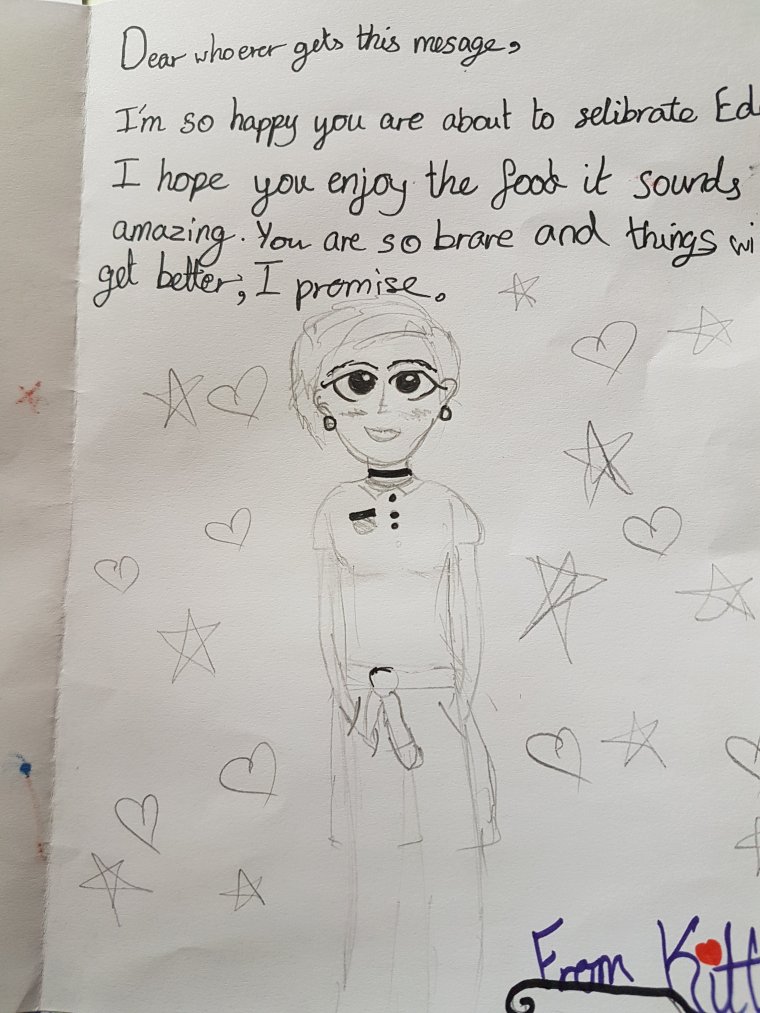 Dear whoever gets this mesage,
I'm so happy you are about to selibrate Ed
I hope you enjoy the food it sounds
amazing. You are so brave and things wi
get better, I promise.
From Kitt